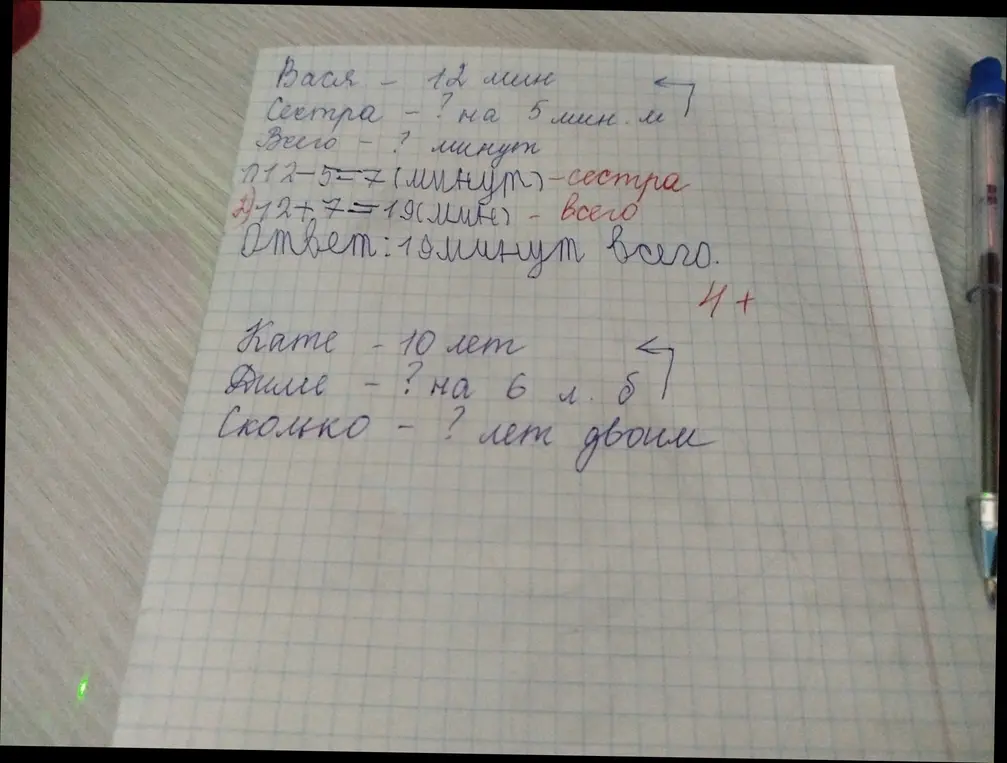 Вася - 12 мин
Сестра - ? на 5 мин. м
Всего - ? минут
1)12-5=7(минут)-сестра
2)12+7=19(мин) - всего
Ответ: 19 минут всего.
4+
Кате - 10 лет
Диме - ? на 6 л. б
Сколько - ? лет двоим